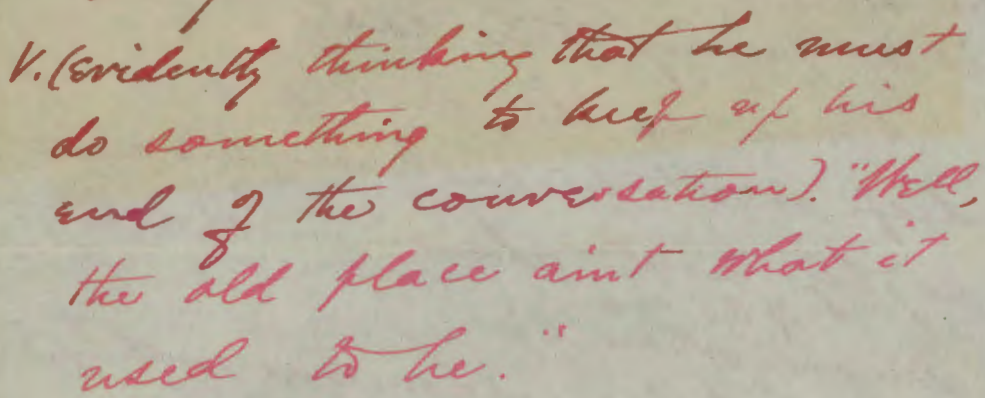 V. (evidently thinking that he must
do something to keep up his
end of the conversation). "Well,
the old place aint what it
used to be."